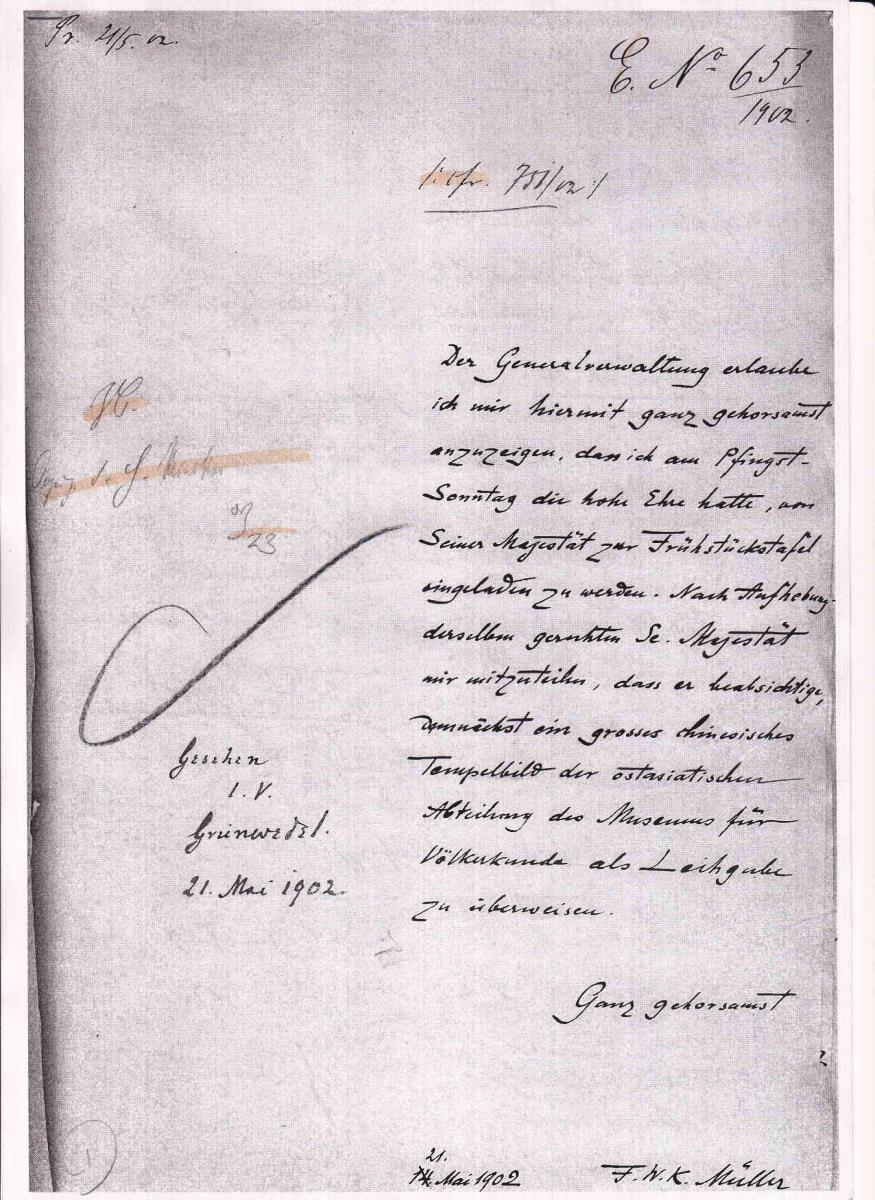 Pr. 21/5. 02.
E. No 653
1902.
/: cfr. 751/02 :/
Der Generalverwaltung erlaube
ich mir hiermit ganz gehorsamst
anzuzeigen, dass ich am Pfingst-
Sonntag die hohe Ehre hatte, von
Seiner Majestät zur Frühstückstafel
eingeladen zu werden. Nach Aufhebung
derselben geruhten Se. Majestät
mir mitzuteilen, dass er beabsichtige,
demnächst ein grosses chinesisches
Tempelbild der ostasiatischen
Abteilung des Museums für
Völkerkunde als Leihgabe
zu überweisen.
Ganz gehorsamst
21.
Mai 1902
F. W. K. Müller
23
Gesehen
I. V.
Grünwedel.
21. Mai 1902.
1